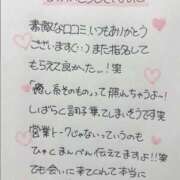 素敵な口コミいつもありがとう
ございます(˙˙) また指名して
もらえて良かった…!笑
「癒し系そのもの」って勝れちゃうよー!
しばらく調子乗てしまいそうです笑
営業トークじゃないっていうのも
ひゅくまんぺん伝えてますよ!!笑
でも会いに来てくれて本当に